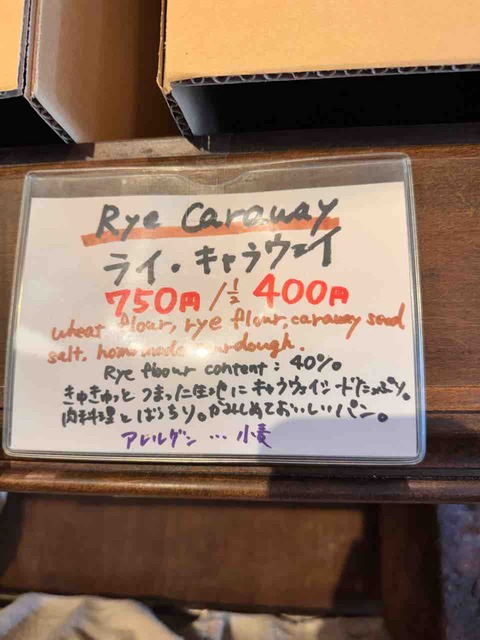 Rye Caraway
ライ・キャラウェイ
750円/½ 400円
wheat flour, rye flour, caraway seed
salt, homemade sourdough.
Rye flour content: 40%.
ぎゅぎゅっとつまった生地にキャラウェイシードたっぷり。
肉料理とばっちり。かみしめておいしいパン。
アレルゲン … 小麦